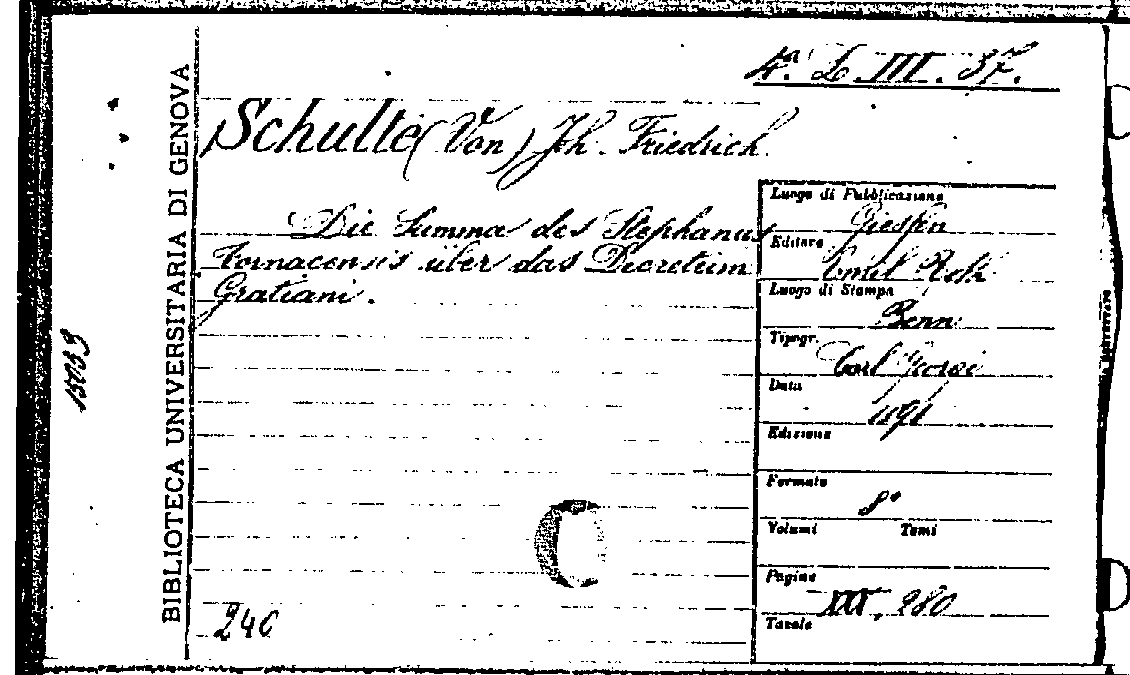 4ª. L. III. 37.
Schulte (Von) Joh. Friedrich.
Die Summa des Stephanus
Tornacensis über das Decretum
Gratiani.
Luogo di Pubblicazione
Giessen
Editore
Emil Roth
Luogo di Stampa
Bonn
Tipogr.
Carl Georgi
Data
1891
Edizione
Formato
8°
Volumi Tomi
Pagine
280
Tavole
240
BIBLIOTECA UNIVERSITARIA DI GENOVA